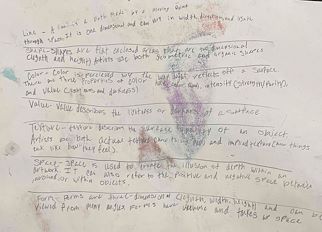 Line - A line is a path made by a moving point
through space. It is one dimensional and can vary in width, direction, and length
Shape - Shapes are flat enclosed areas that are two dimensional
(Length and height) Artists use both geometric and organic shapes
Color - Color is perceived when the light reflects off a surface
There are three properties of color intensity (strength/purity),
and value (lightness and darkness)
Value - Value describes the lightness or darkness of a surface
Texture - Texture describes the surface quality of an object
Artists use both actual texture and implied texture (how things
look like how they feel).
Space - Space is used to create the illusion of depth within an
artwork. It can also refer to the positive and negative space between
around, or within objects.
Form - Forms are three-dimensional (length, width, height) and can be
viewed from many angles forms have volume and takes up space